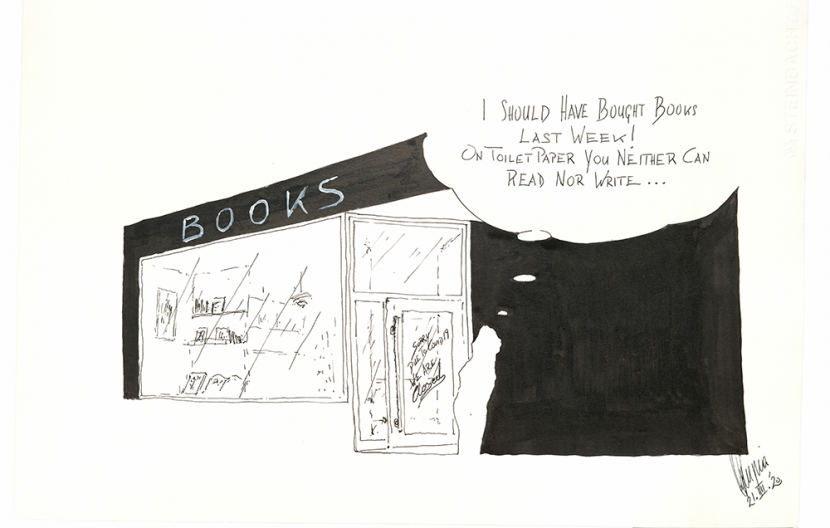 I SHOULD HAVE BOUGHT BOOKS
LAST WEEK!
ON TOILET PAPER YOU NEITHER CAN
READ NOR WRITE...
BOOKS
SORRY
DUE TO COVID 19
WE ARE
CLOSED
21.III.'20
STEINBACH